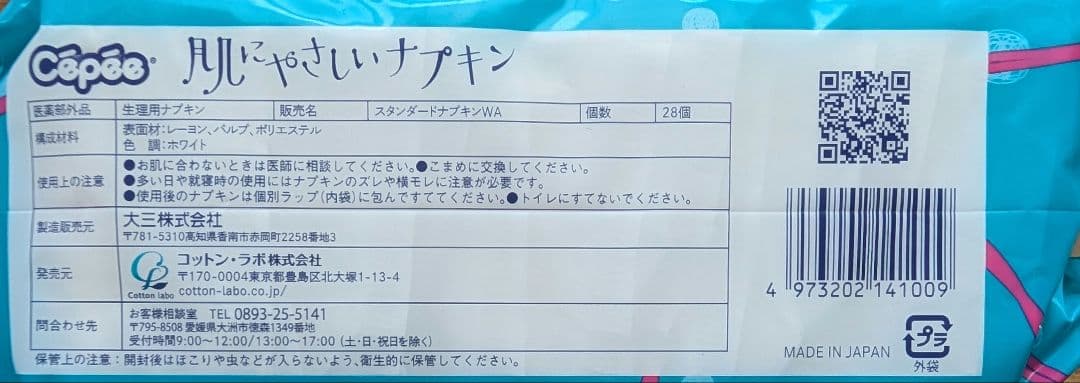 Cēpēe® 肌にやさしいナプキン
医薬部外品 生理用ナプキン 販売名 スタンダードナプキンWA 個数 28個
構成材料 表面材:レーヨン、パルプ、ポリエステル
色 調:ホワイト
使用上の注意 ●お肌に合わないときは医師に相談してください。●こまめに交換してください。
●多い日や就寝時の使用にはナプキンのズレや横モレに注意が必要です。
●使用後のナプキンは個別ラップ(内袋)に包んですててください。●トイレにすてないでください。
製造販売元 大三株式会社
〒781-5310高知県香南市赤岡町2258番地3
発売元 コットン・ラボ株式会社
〒170-0004東京都豊島区北大塚1-13-4
Cotton labo cotton-labo.co.jp/
問合わせ先 お客様相談室 TEL 0893-25-5141
〒795-8508 愛媛県大洲市徳森1349番地
受付時間9:00~12:00/13:00~17:00 (土・日・祝日を除く)
保管上の注意:開封後はほこりや虫などが入らないよう、衛生的に保管してください。
4 973202 141009
MADE IN JAPAN
プラ
外袋